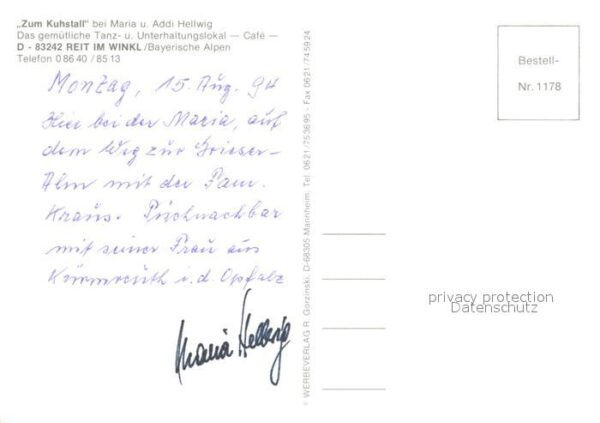 „Zum Kuhstall" bei Maria u. Addi Hellwig
Das gemütliche Tanz- u. Unterhaltungslokal — Café —
D - 83242 REIT IM WINKL/Bayerische Alpen
Telefon 08640/8513
Montag, 15. Aug. 94
Hier bei der Maria, auf
dem Weg zur Grieser-
Alm mit der Fam.
Kraus. Tischnachbar
mit seiner Frau aus
i. d. Opfalz
Maria Hellwig
© WERBEVERLAG R. Gorzinski, D-68305 Mannheim, Tel. 0621/753695 - Fax 0621/745924
Bestell-
Nr. 1178
privacy protection
Datenschutz